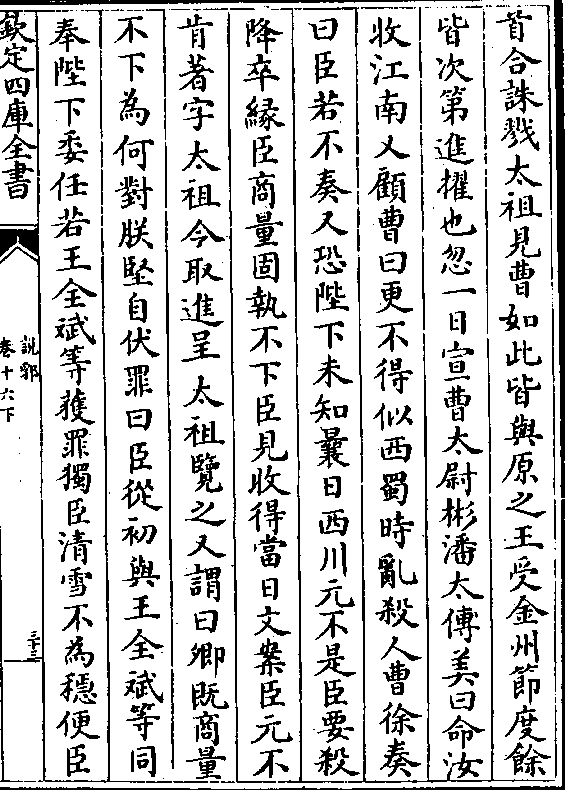 首合誅戮太祖見曹如此皆與原之王受金州節度餘
皆次第進擢也忽一日宣曹太尉彬潘太傅美曰命汝
收江南又顧曹曰更不得似西蜀時亂殺人曹徐奏
曰臣若不奏又恐陛下未知曩日西川元不是臣要殺
降卒縁臣商量固執不下臣見收得當日文案臣元不
肯著字太祖今取進呈太祖覽之又謂曰卿既商量
不下為何對朕堅自伏罪曰臣從初與王全斌等同
奉陛下委任若王全斌等獲罪獨臣清雪不為穩便臣
欽定四庫全書
説郛
卷十六下
三十三